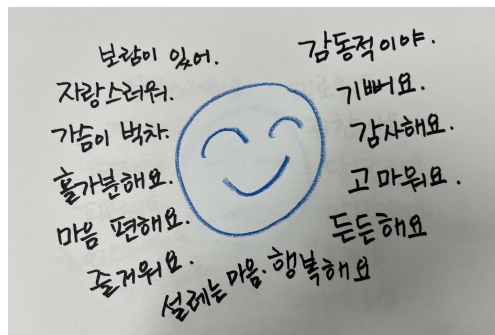 보람이 있어.
자랑스러워.
가슴이 벅차.
홀가분해요.
마음 편해요.
즐거워요.
설레는 마음.
행복해요
감동적이야.
기뻐요.
감사해요.
고마워요.
든든해요